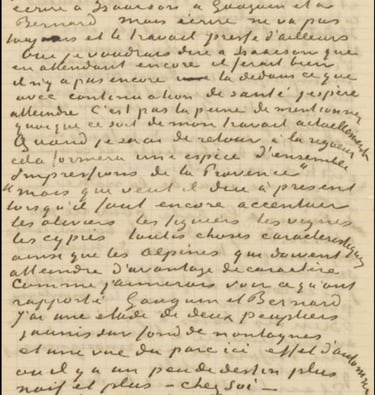 écrire à Isaacson, à Gauguin et à
Bernard mais écrire ne va pas
toujours et le travail presse d'ailleurs
Oui je voudrais dire à Isaacson que
en attendant encore il ferait bien
il n'y a pas encore là dedans ce que
avec continuation de santé j'espère
atteindre C'est pas la peine de mentionner
quoique ce soit de mon travail actuellement
Quand je serai de retour, à la rigueur
cela formera une espèce d'ensemble
"Impressions de la Provence"
mais que veut il dire à présent
lorsqu'il faut encore accentuer
les oliviers les figuiers les vignes
les cyprès toutes choses caractéristiques
ainsi que les Alpines qui doivent
atteindre d'avantage de caractère
Comme j'aimerais voir ce qu'ont
rapporté Gauguin et Bernard
J'ai une étude de deux peupliers
jaunis sur fond de montagnes
et une vue du parc ici effet d'automne
où il y a un peu de dessin plus
naïf et plus — chez soi —